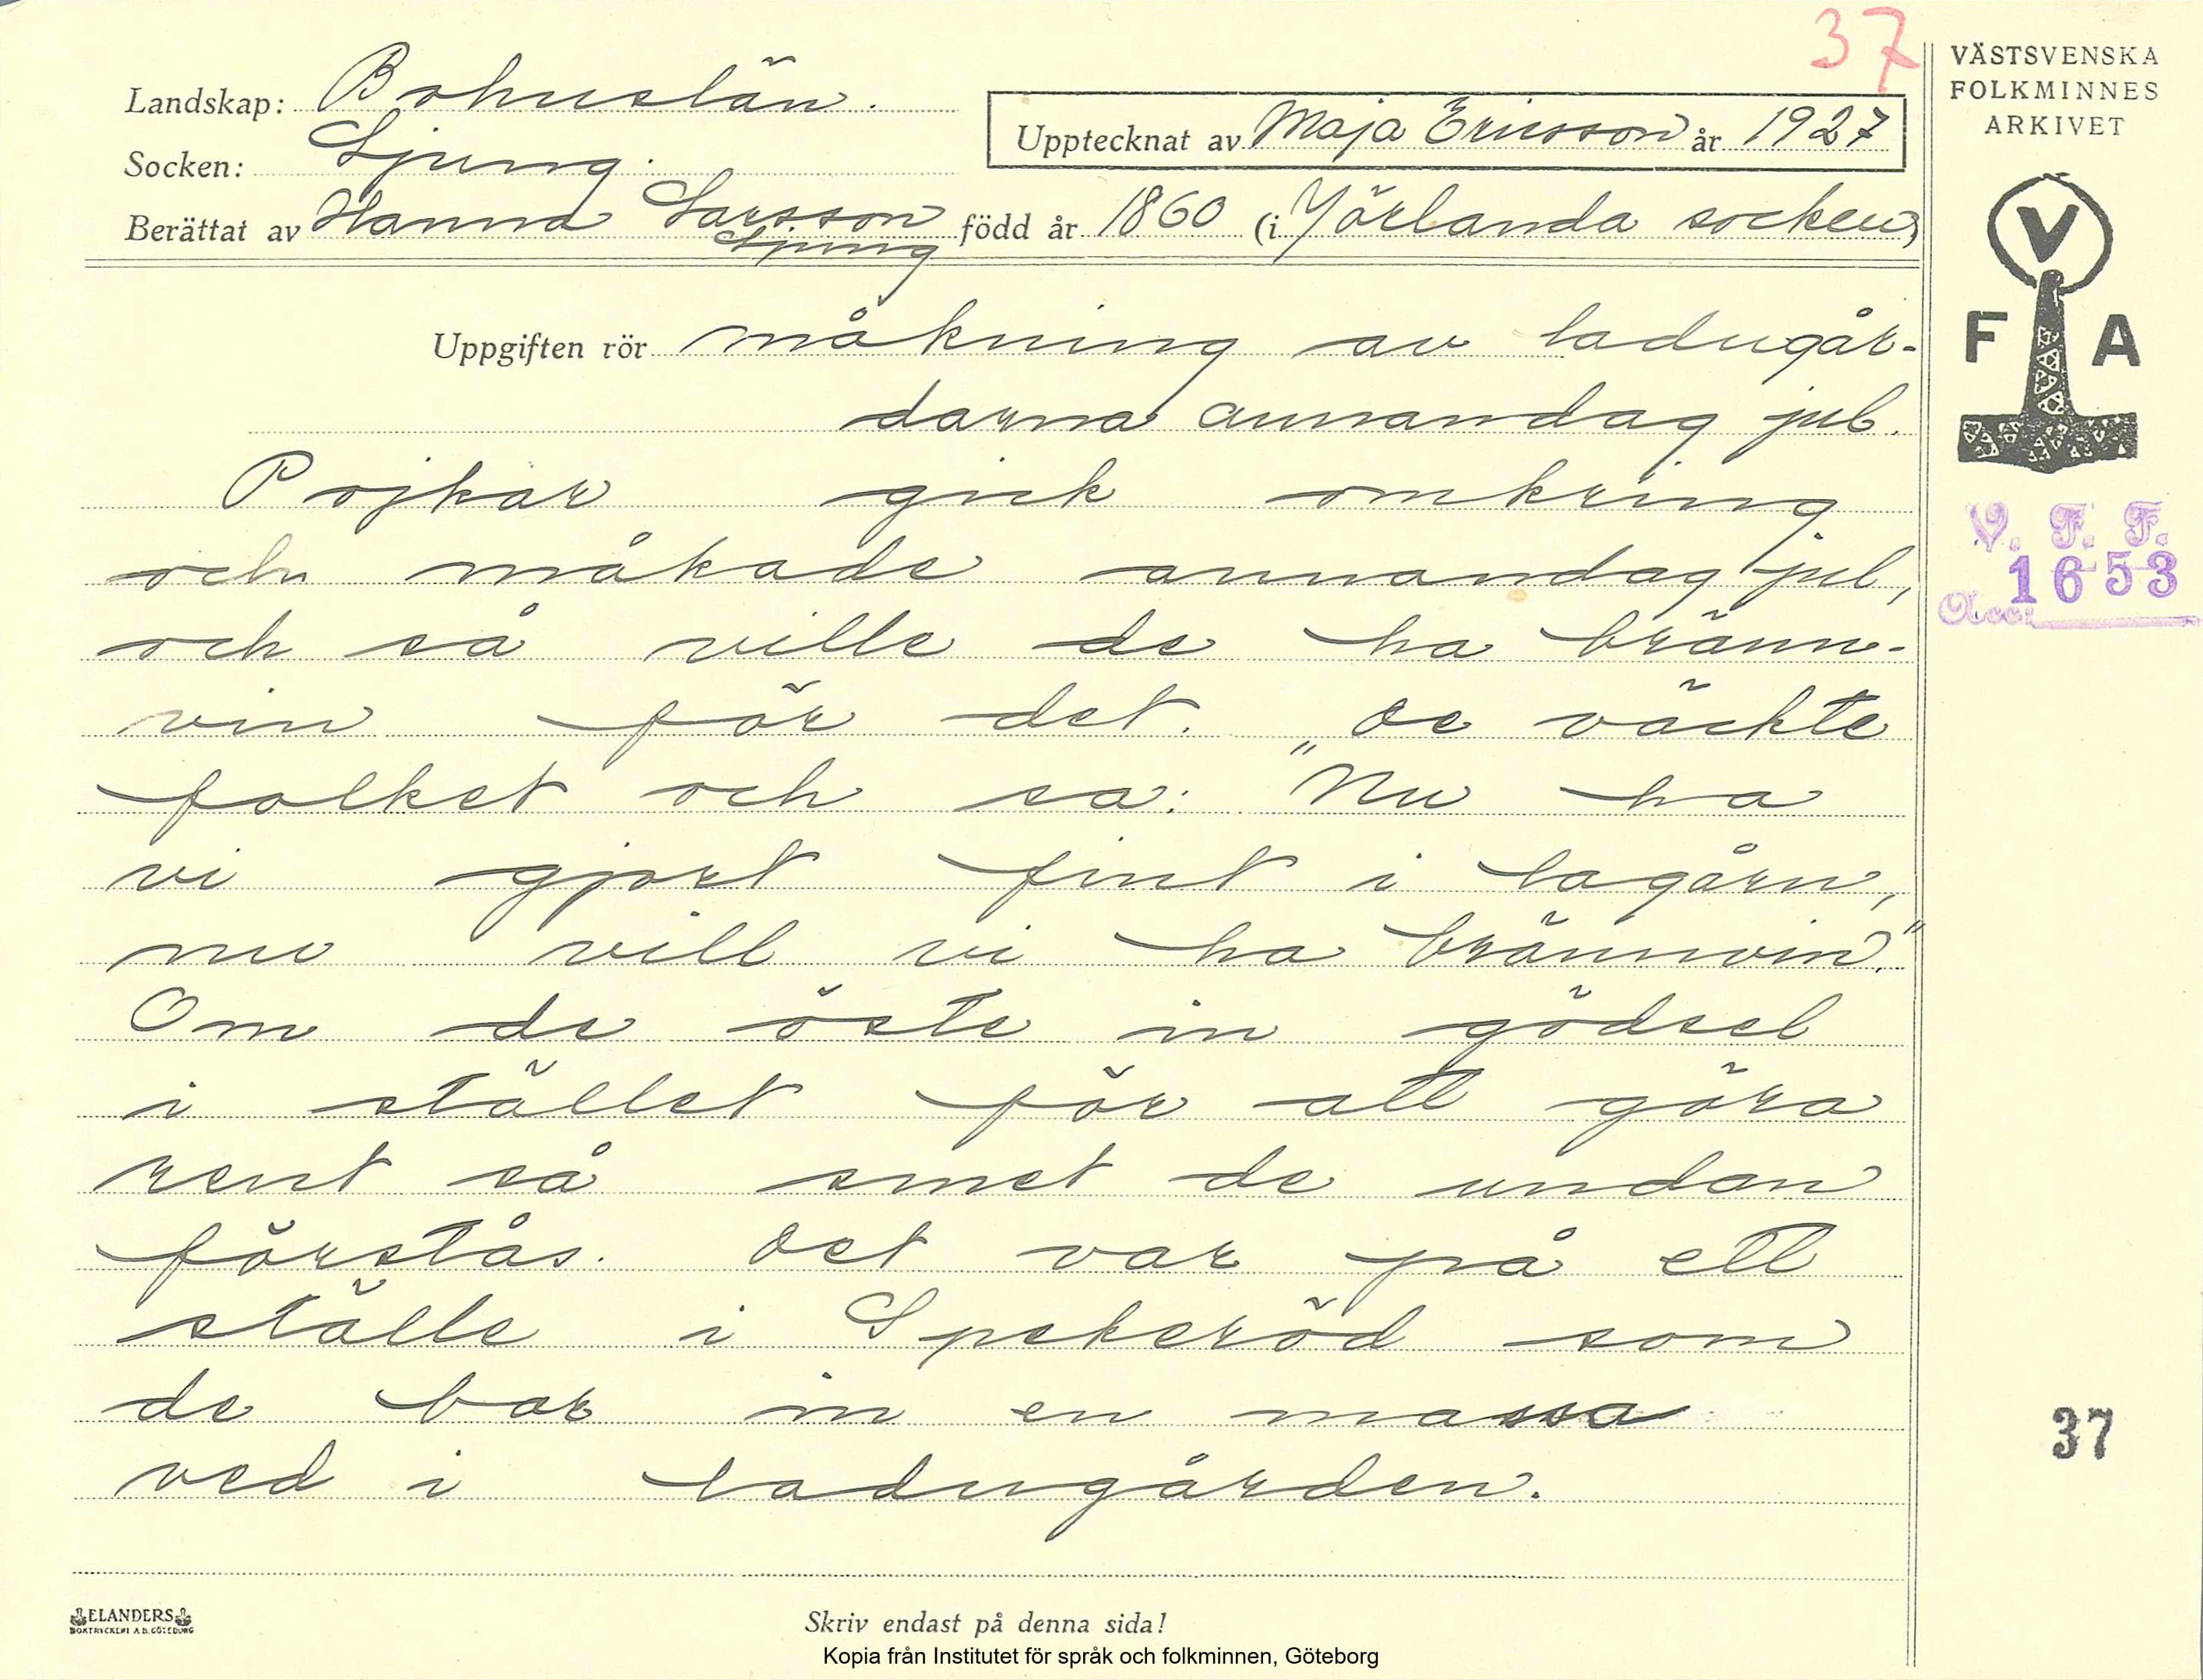 37
VÄSTSVENSKA
FOLKMINNES
ARKIVET
Landskap: Bohuslän.
Upptecknat av Maja Ericsson år 1927
Socken: Ljung.
Berättat av Hanna Larsson född år 1860 (i Yörlanda socken)
Ljung
V
F A
Uppgiften rör måkning av ladugår-
darna annandag jul.
Pojkar gick omkring
och måkade annandag jul,
och så ville de ha bränn-
vin för det. De väckte
folket och sa: "Nu ha
vi gjort fint i lagårn,
nu vill vi ha brännvin."
Om de öste in gödsel
i stället för att göra
rent så smet de undan
förstås. Det var på ett
ställe i Spekeröd som
de bar in en massa
ved i ladugården.
V. F. F.
1653
Acc:
37
ELANDERS
BOKTRYCKERI A.B. GÖTEBORG
Skriv endast på denna sida!
Kopia från Institutet för språk och folkminnen, Göteborg